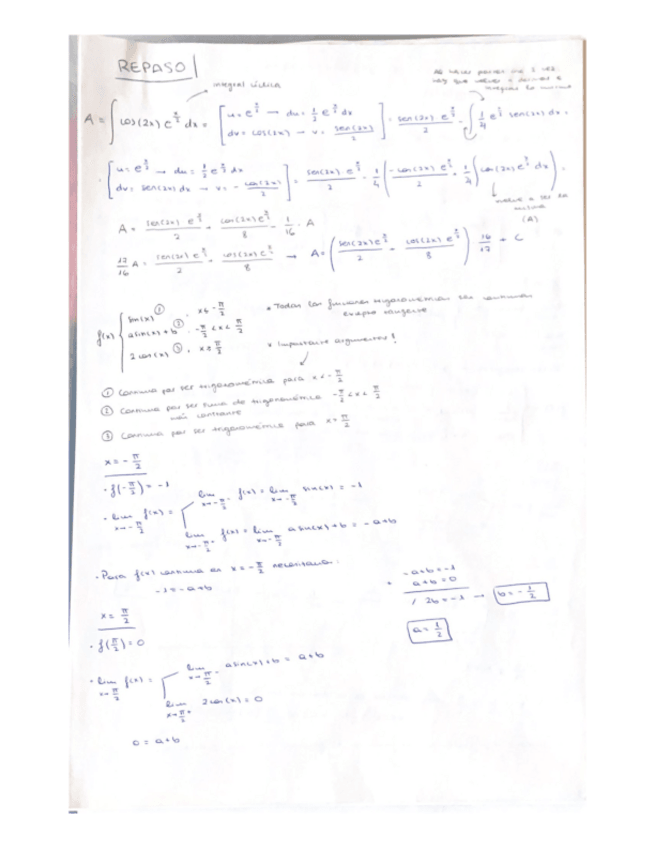 REPASO
Integral cíclica
A = ∫ cos(2x) e^(x/2) dx = [ u = e^(x/2) → du = 1/2 e^(x/2) dx
dv = cos(2x) → v = sen(2x)/2 ] = sen(2x) e^(x/2) / 2 - ∫ 1/4 e^(x/2) sen(2x) dx =
[ u = e^(x/2) → du = 1/2 e^(x/2) dx
dv = sen(2x) dx → v = - cos(2x)/2 ] = sen(2x) e^(x/2) / 2 - 1/4 ( -cos(2x) e^(x/2) / 2 + 1/4 ∫ cos(2x) e^(x/2) dx ) =
vuelve a ser la
misma
(A)
A = sen(2x) e^(x/2) / 2 + cos(2x) e^(x/2) / 8 - 1/16 · A
17/16 A = sen(2x) e^(x/2) / 2 + cos(2x) e^(x/2) / 8 → A = ( sen(2x) e^(x/2) / 2 + cos(2x) e^(x/2) / 8 ) 16/17 + C
f(x) { sin(x) ①, x ≤ -π/2
a sin(x) + b ②, -π/2 < x < π/2
2 cos(x) ③, x ≥ π/2
* Todas las funciones trigonométricas son continuas
excepto tangente
* Importante argumentos!
① Continua por ser trigonométrica para x < -π/2
② Continua por ser suma de trigonométrica -π/2 < x < π/2
más constante
③ Continua por ser trigonométrica para x > π/2
x = -π/2
· f(-π/2) = -1
· lim x→-π/2 f(x) = lim x→-π/2⁻ f(x) = lim x→-π/2 sin(x) = -1
lim x→-π/2⁺ f(x) = lim x→-π/2 a sin(x) + b = -a+b
· Para f(x) continua en x = -π/2 necesitamos:
-1 = -a+b
x = π/2
· f(π/2) = 0
· lim x→π/2 f(x) = lim x→π/2⁻ a sin(x) + b = a+b
lim x→π/2⁺ 2 cos(x) = 0
0 = a+b
-a+b = -1
+ a+b = 0
/ 2b = -1 → b = -1/2
a = 1/2